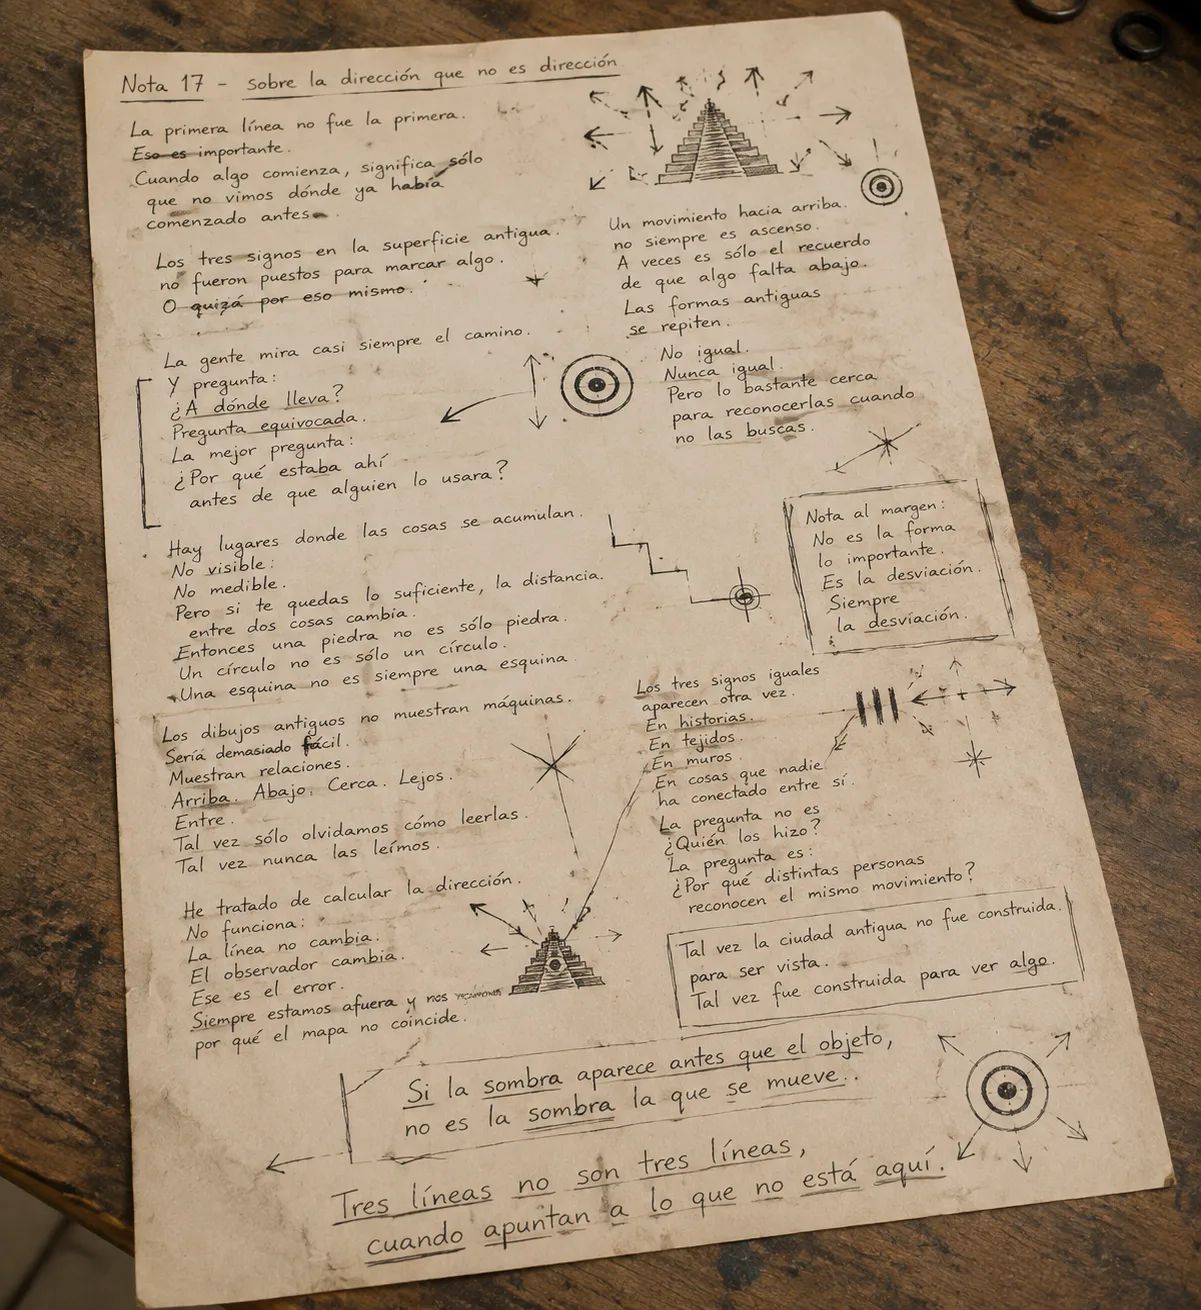 Nota 17 - sobre la dirección que no es dirección
La primera línea no fue la primera.
Eso es importante.
Cuando algo comienza, significa sólo
que no vimos dónde ya había
comenzado antes.
Los tres signos en la superficie antigua.
no fueron puestos para marcar algo.
O quizá por eso mismo.
La gente mira casi siempre el camino.
Y pregunta:
¿A dónde lleva?
Pregunta equivocada.
La mejor pregunta:
¿Por qué estaba ahí
antes de que alguien lo usara?
Hay lugares donde las cosas se acumulan.
No visible:
No medible.
Pero si te quedas lo suficiente, la distancia.
entre dos cosas cambia.
Entonces una piedra no es sólo piedra.
Un círculo no es sólo un círculo.
Una esquina no es siempre una esquina.
Los dibujos antiguos no muestran máquinas.
Sería demasiado fácil.
Muestran relaciones.
Arriba. Abajo. Cerca. Lejos.
Entre.
Tal vez sólo olvidamos cómo leerlas.
Tal vez nunca las leímos.
He tratado de calcular la dirección.
No funciona:
La línea no cambia.
El observador cambia.
Ese es el error.
Siempre estamos afuera y nos
por qué el mapa no coincide.
Un movimiento hacia arriba.
no siempre es ascenso.
A veces es sólo el recuerdo
de que algo falta abajo.
Las formas antiguas
se repiten.
No igual.
Nunca igual.
Pero lo bastante cerca
para reconocerlas cuando
no las buscas.
Nota al margen:
No es la forma
lo importante.
Es la desviación.
Siempre
la desviación.
Los tres signos iguales
aparecen otra vez.
En historias.
En tejidos.
En muros.
En cosas que nadie
ha conectado entre sí.
La pregunta no es
¿Quién los hizo?
La pregunta es:
¿Por qué distintas personas
reconocen el mismo movimiento?
Tal vez la ciudad antigua no fue construida.
para ser vista.
Tal vez fue construida para ver algo.
Si la sombra aparece antes que el objeto,
no es la sombra la que se mueve..
Tres líneas no son tres líneas,
cuando apuntan a lo que no está aquí.